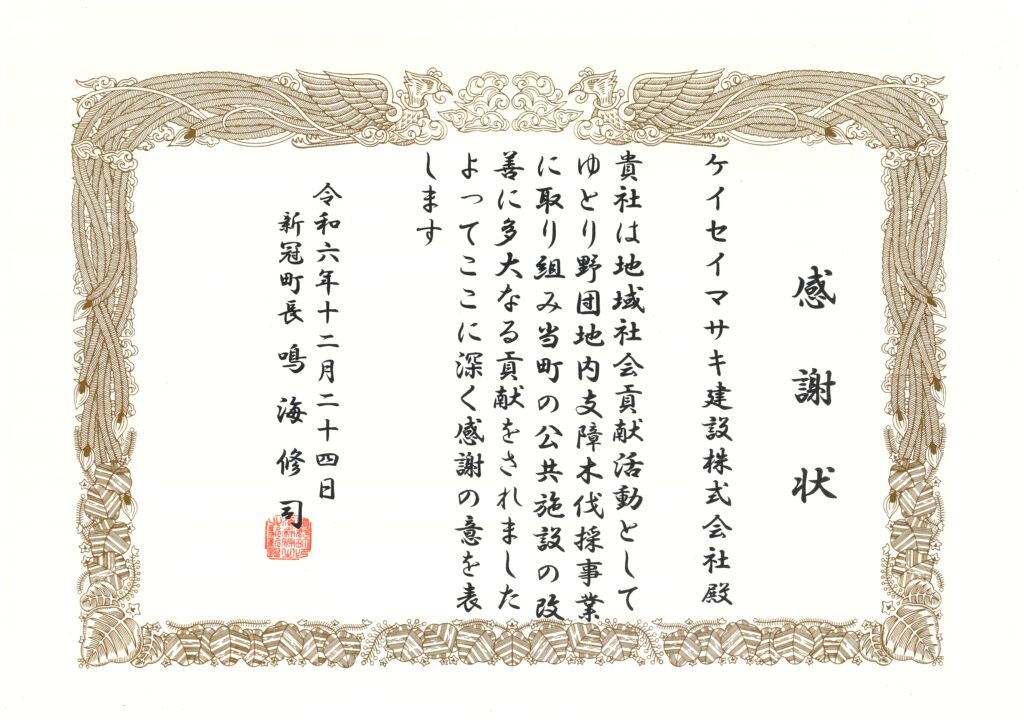 感謝状
ケイセイマサキ建設株式会社殿
貴社は地域社会貢献活動として
ゆとり野団地内支障木伐採事業
に取り組み当町の公共施設の改
善に多大なる貢献をされました
よってここに深く感謝の意を表
します
令和六年十二月二十四日
新冠町長 鳴海修司